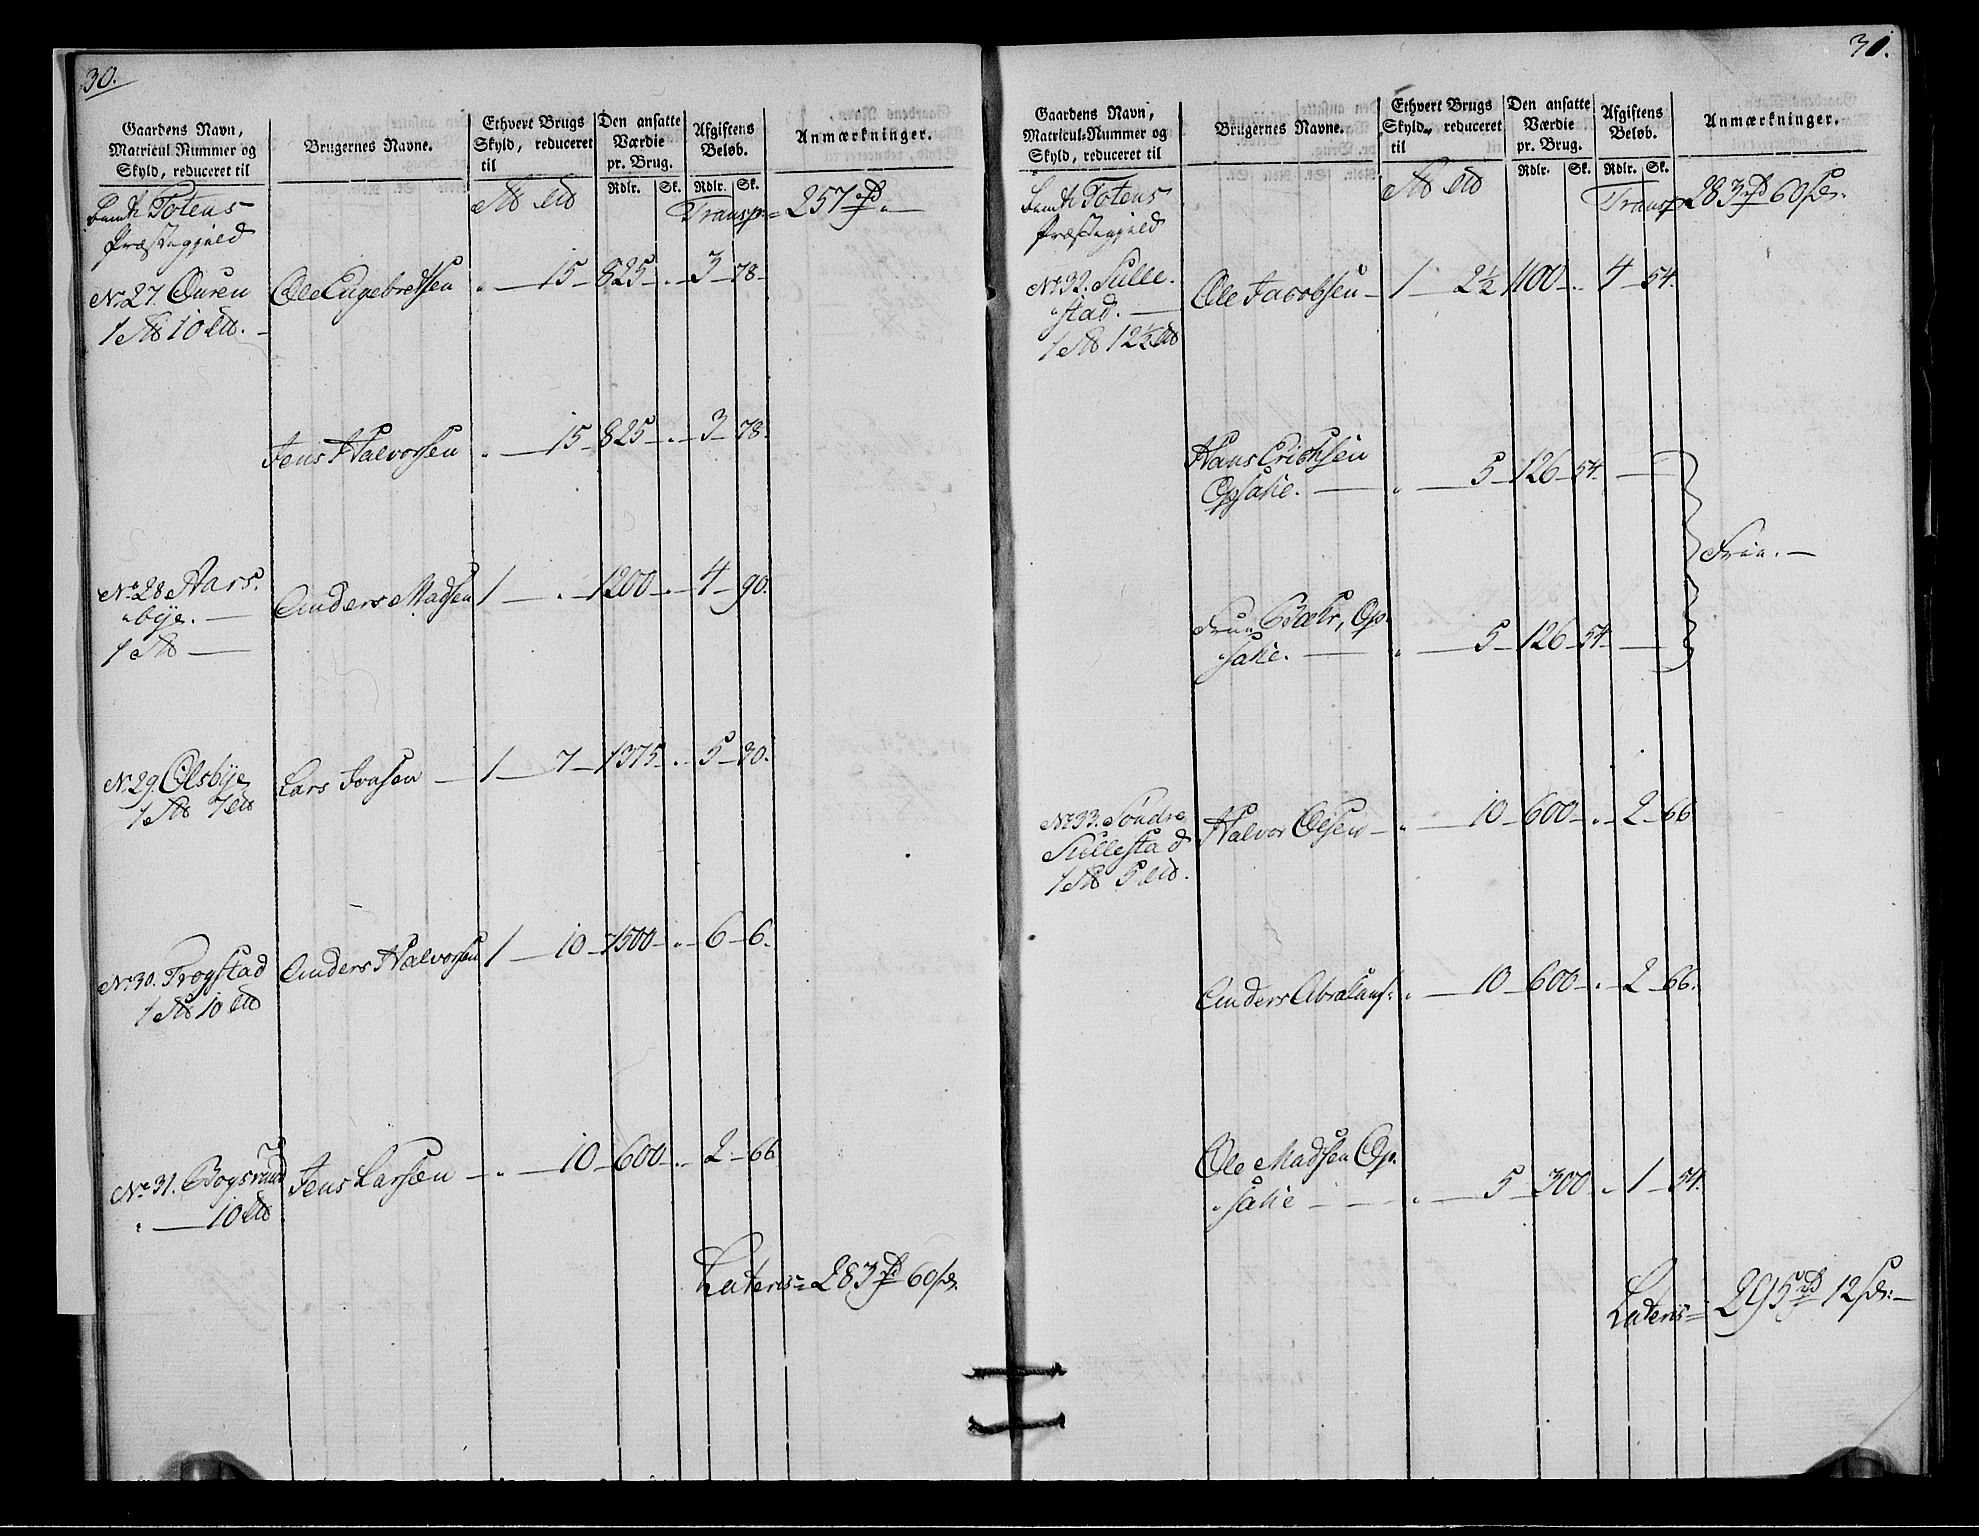 30.
Gaardens Navn,
Matricul Nummer og
Skyld, reduceret til
Brugernes Navne.
Ethvert Brugs
Skyld, reduceret
til
Den ansatte
Værdie
pr. Brug.
Rdlr. Sk.
Afgiftens
Beløb.
Rdlr. Sk.
Anmærkninger.
Totens
Præstegjeld
Transp. = 257
No 27. Øuren Ole Engebretsen " 15 825 " 3 78
1 10
Jens Halvorsen " 15 825 " 3 78.
No 28 Aars-
bye. Anders Madsen 1 " 1200 " 4 90.
1
No 29. Olsbye Lars Jonsen 1 7 1375 " 5 30.
1 7
No 30. Trogstad Anders Halvorsen 1 10 1500 " 6 6.
1 10
No 31. Bogsrud Jens Larsen " 10 600 " 2 66
" 10
Lateris = 283 60
31.
Gaardens Navn,
Matricul-Nummer og
Skyld, reduceret til
Brugernes Navne.
Ethvert Brugs
Skyld, reduceret
til
Den ansatte
Værdie
pr. Brug.
Rdlr. Sk.
Afgiftens
Beløb.
Rdlr. Sk.
Anmærkninger.
Totens
Præstegjeld
Transp 283 60
No 32. Sulle-
stad. Ole Jacobsen 1 2½ 1100 " 4 54.
1 12½
Hans Erichsen
Opsahl. " 5 126 54
Frie.
Frue Bæhr, Op-
sahl. " 5 126 54
No 33. Søndre
Sullestad Halvor Olsen " 10 600 " 2 66
1 5
Anders Abrahams: " 10 600 " 2 66.
Ole Madsen Op-
sahl " 5 300 " 1 54.
Lateris = 295 12